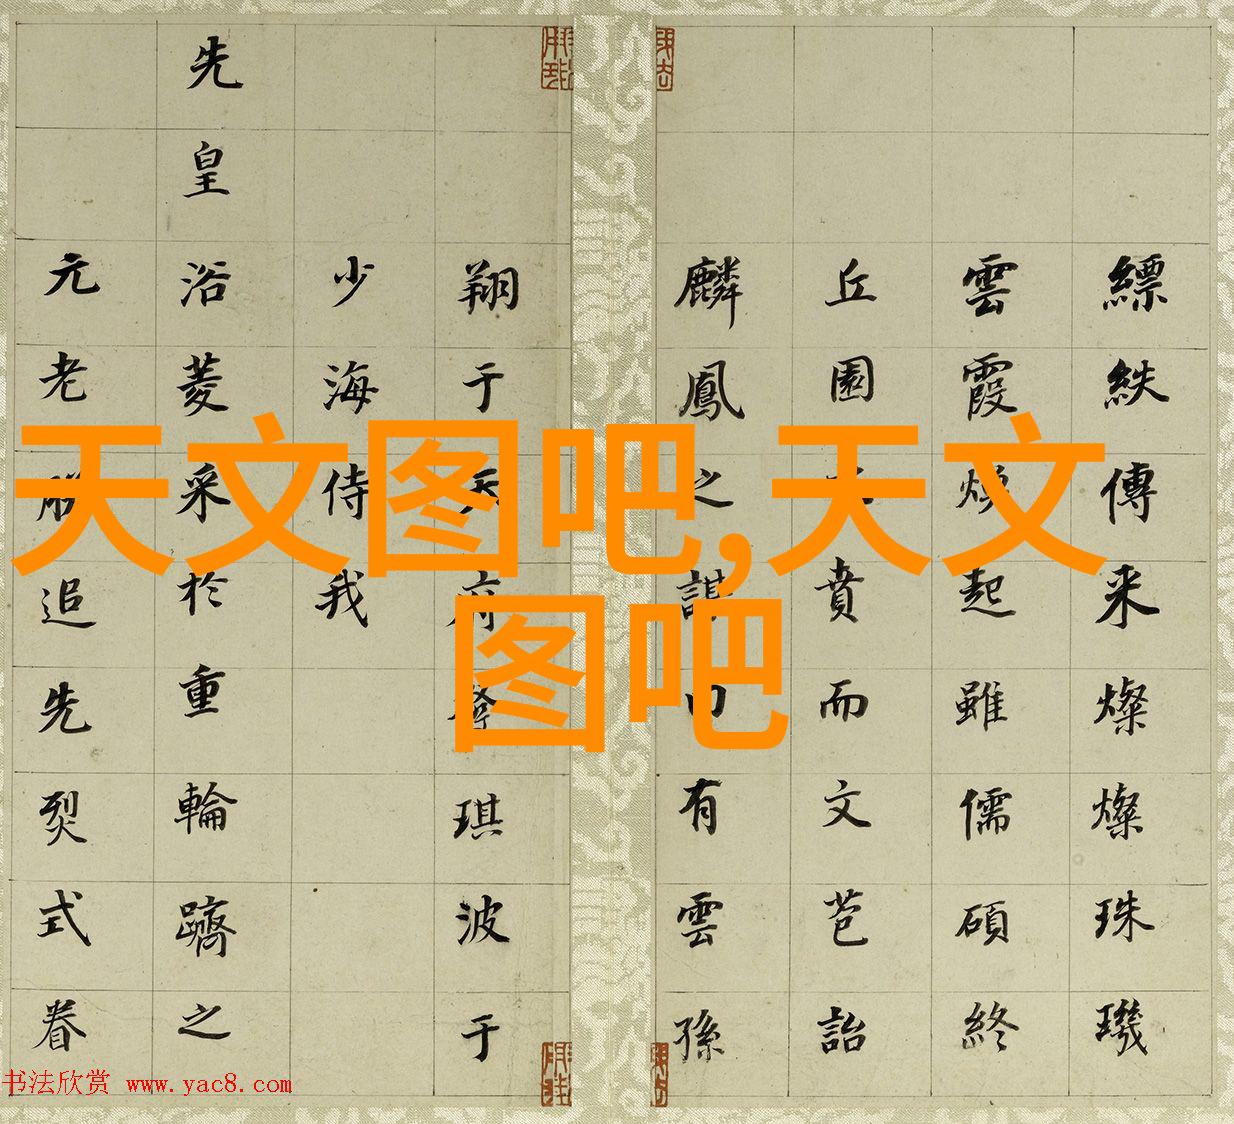 縹紩傳来燦燦珠璣
雲霞煥起雖儒碩終
丘園賁而文芭詒
麟鳳之有雲孫
翔于天府琪波于
少海侍我
先皇浴菱采於重輪躋之
元老追先烈式眷
天文图吧,天文
图吧
书法欣赏 www.yac8.com